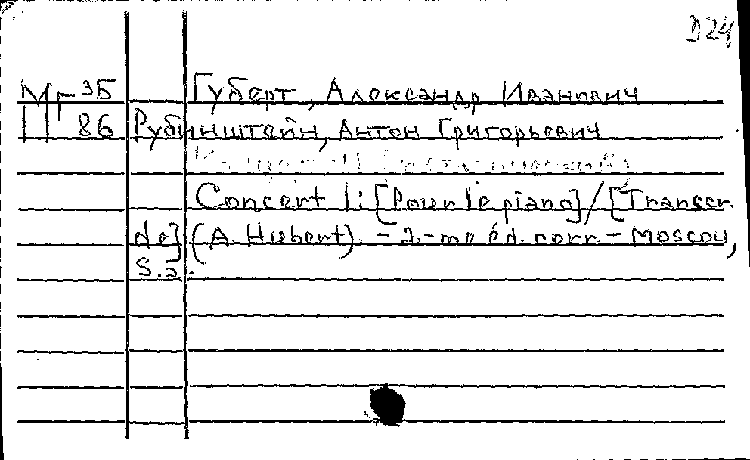 D24
Мг 3Б Губерт, Александр Иванович
П 86 Рубинштейн, Антон Григорьевич
Concert 1: [Pour le piano] / [Transcr.
de] (A. Hubert). - 2-me éd. corr. - Moscou,
S.a.